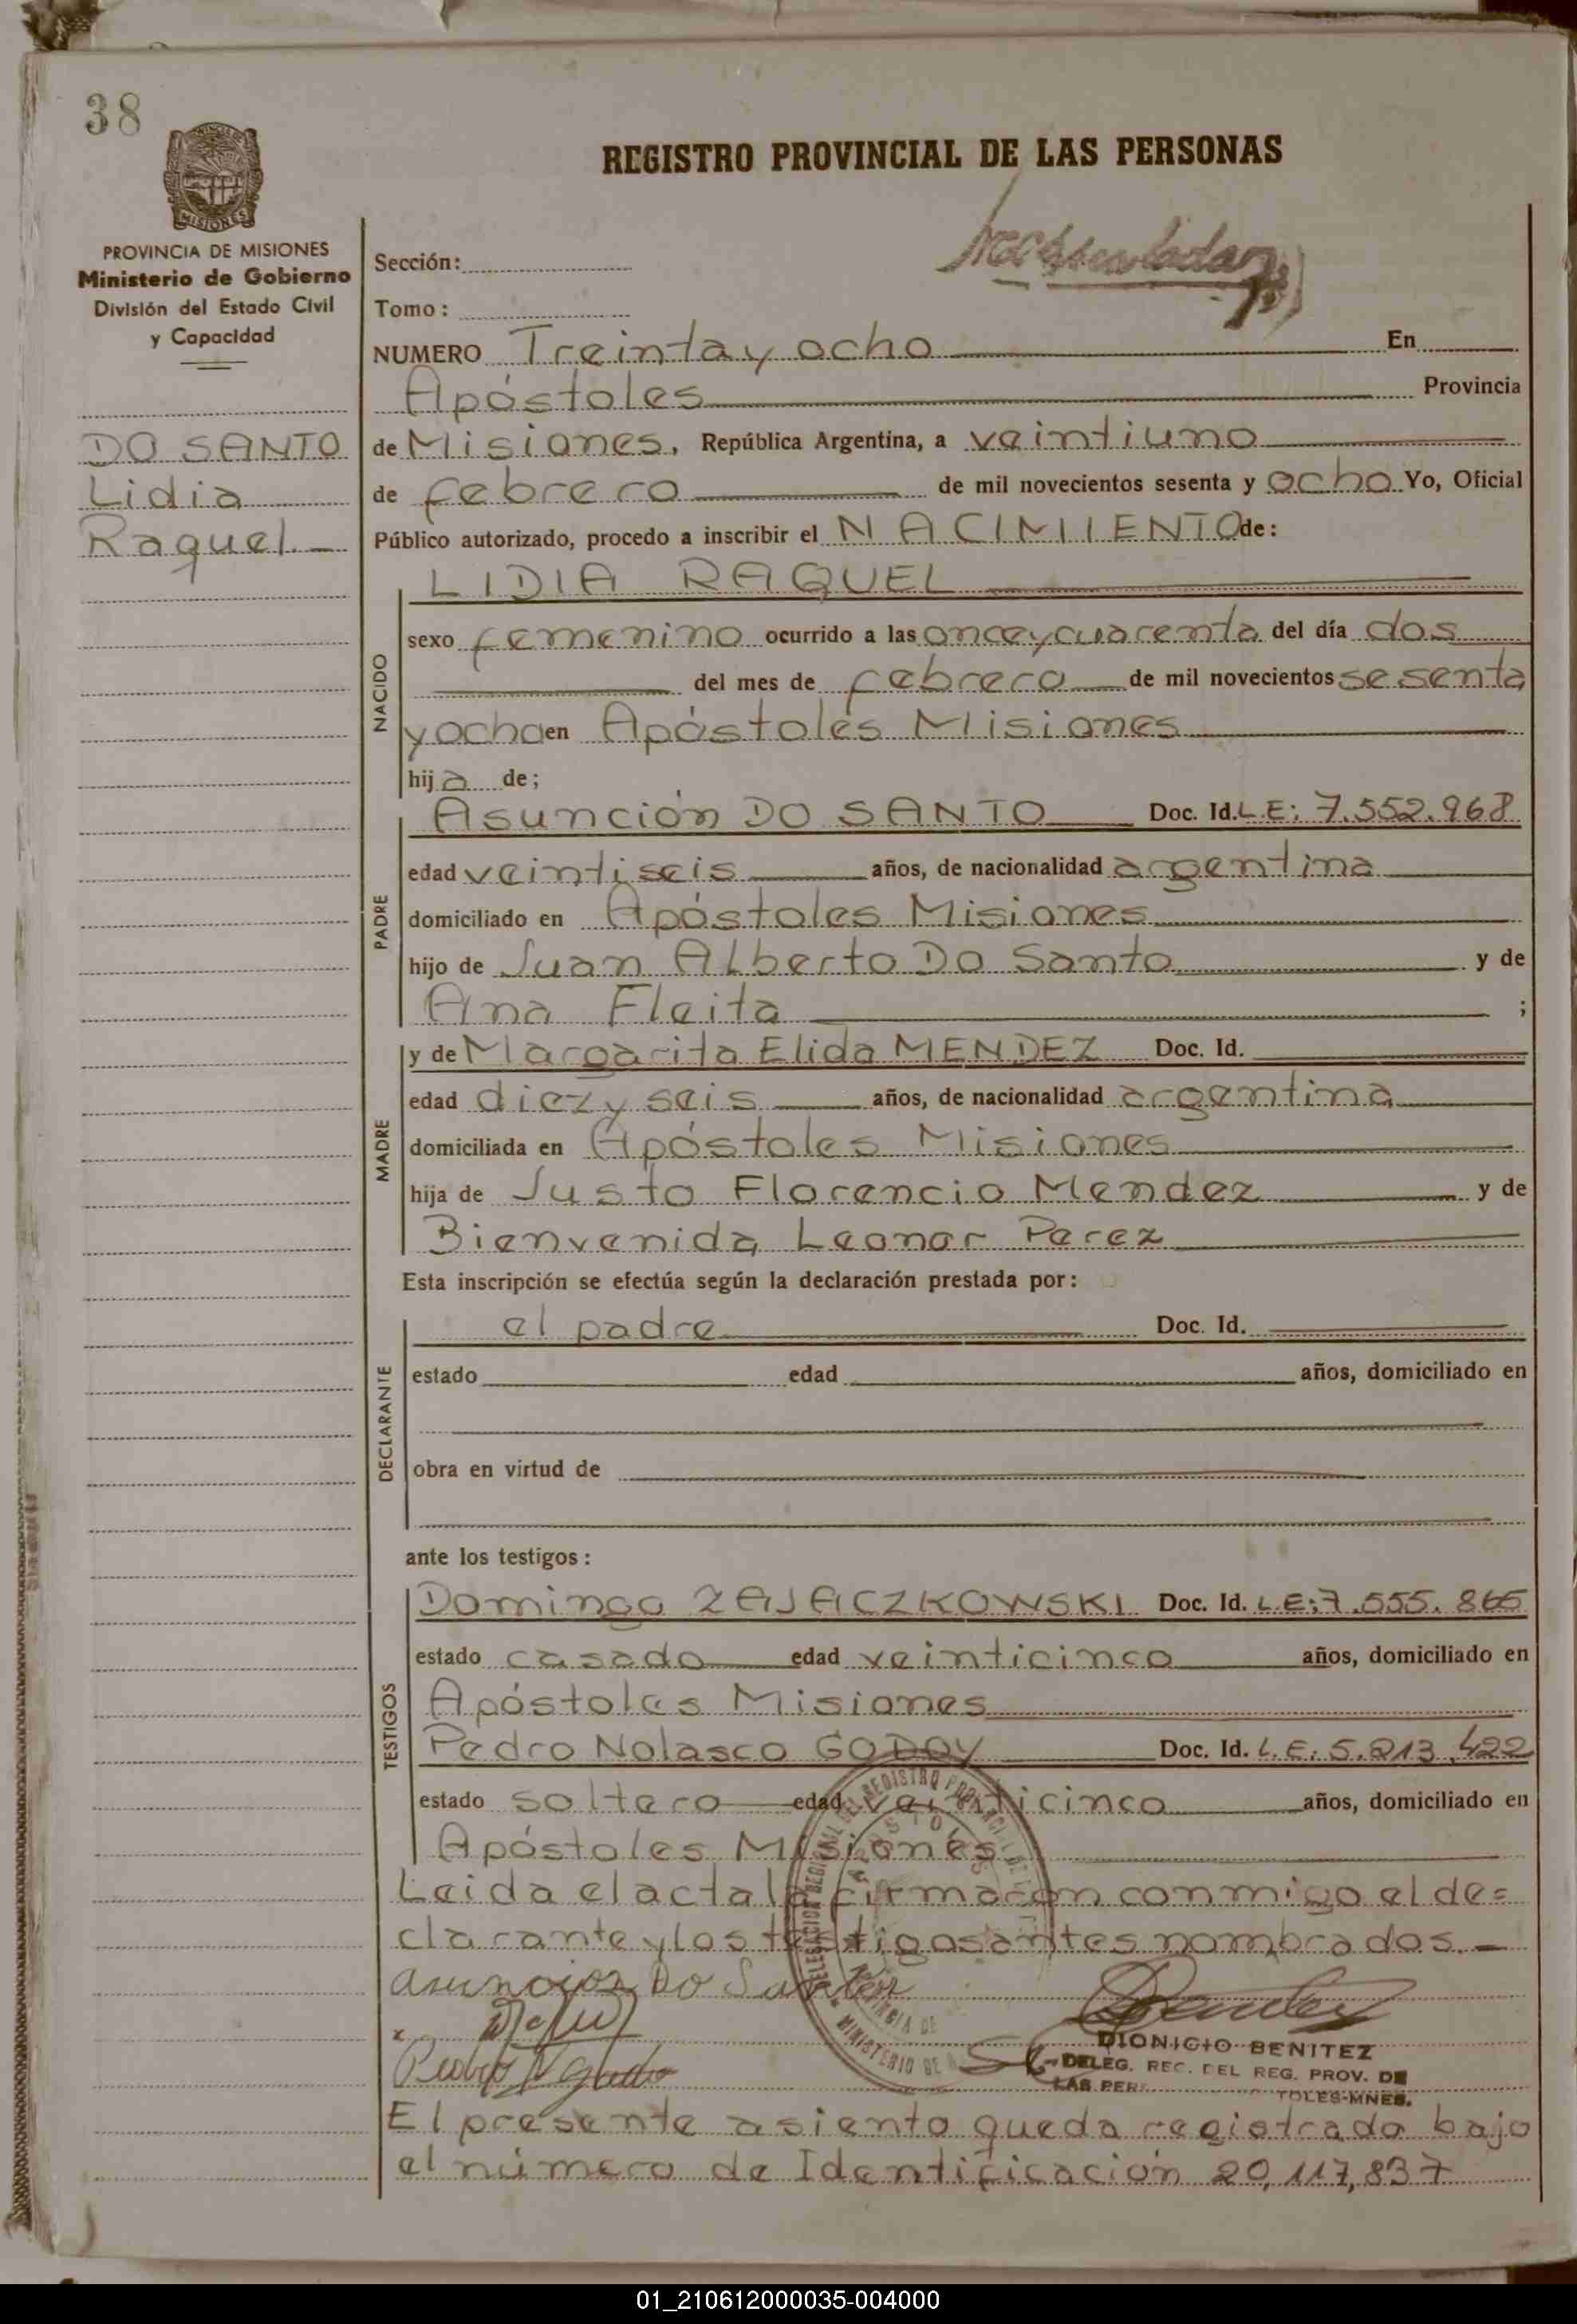 38
REGISTRO PROVINCIAL DE LAS PERSONAS
MISIONES
PROVINCIA DE MISIONES
Ministerio de Gobierno
División del Estado Civil
y Capacidad
DO SANTO
Lidia
Raquel.
Sección:
Tomo:
NUMERO Treinta y ocho En
Apóstoles Provincia
de Misiones, República Argentina, a veintiuno
de febrero de mil novecientos sesenta y ocho Yo, Oficial
Público autorizado, procedo a inscribir el NACIMIENTO de:
LIDIA RAQUEL
NACIDO
sexo femenino ocurrido a las once y cuarenta del día dos
del mes de febrero de mil novecientos sesenta
y ocho en Apóstoles Misiones
hija de;
PADRE
Asunción DO SANTO Doc. Id. L.E: 7.552.968
edad veintiseis años, de nacionalidad argentina
domiciliado en Apóstoles Misiones
hijo de Juan Alberto Do Santo y de
Ana Fleita ;
MADRE
y de Margarita Elida MENDEZ Doc. Id.
edad diez y seis años, de nacionalidad argentina
domiciliada en Apóstoles Misiones
hija de Justo Florencio Mendez y de
Bienvenida Leonor Perez
Esta inscripción se efectúa según la declaración prestada por:
DECLARANTE
el padre Doc. Id.
estado edad años, domiciliado en
obra en virtud de
ante los testigos:
TESTIGOS
Domingo ZAJACZKOWSKI Doc. Id. L.E: 7.555.865
estado casado edad veinticinco años, domiciliado en
Apóstoles Misiones
Pedro Nolasco GODOY Doc. Id. L.E: 5.213.422
estado soltero edad veinticinco años, domiciliado en
Apóstoles Misiones
Leida el acta la firmaron conmigo el de=
clarante y los testigos antes nombrados.
Asuncion Do Santo
DIONICIO BENITEZ
DELEG. REC. DEL REG. PROV. DE
LAS PER TOLES-MNES.
El presente asiento queda registrado bajo
el número de Identificación 20,117,837
01_210612000035-004000